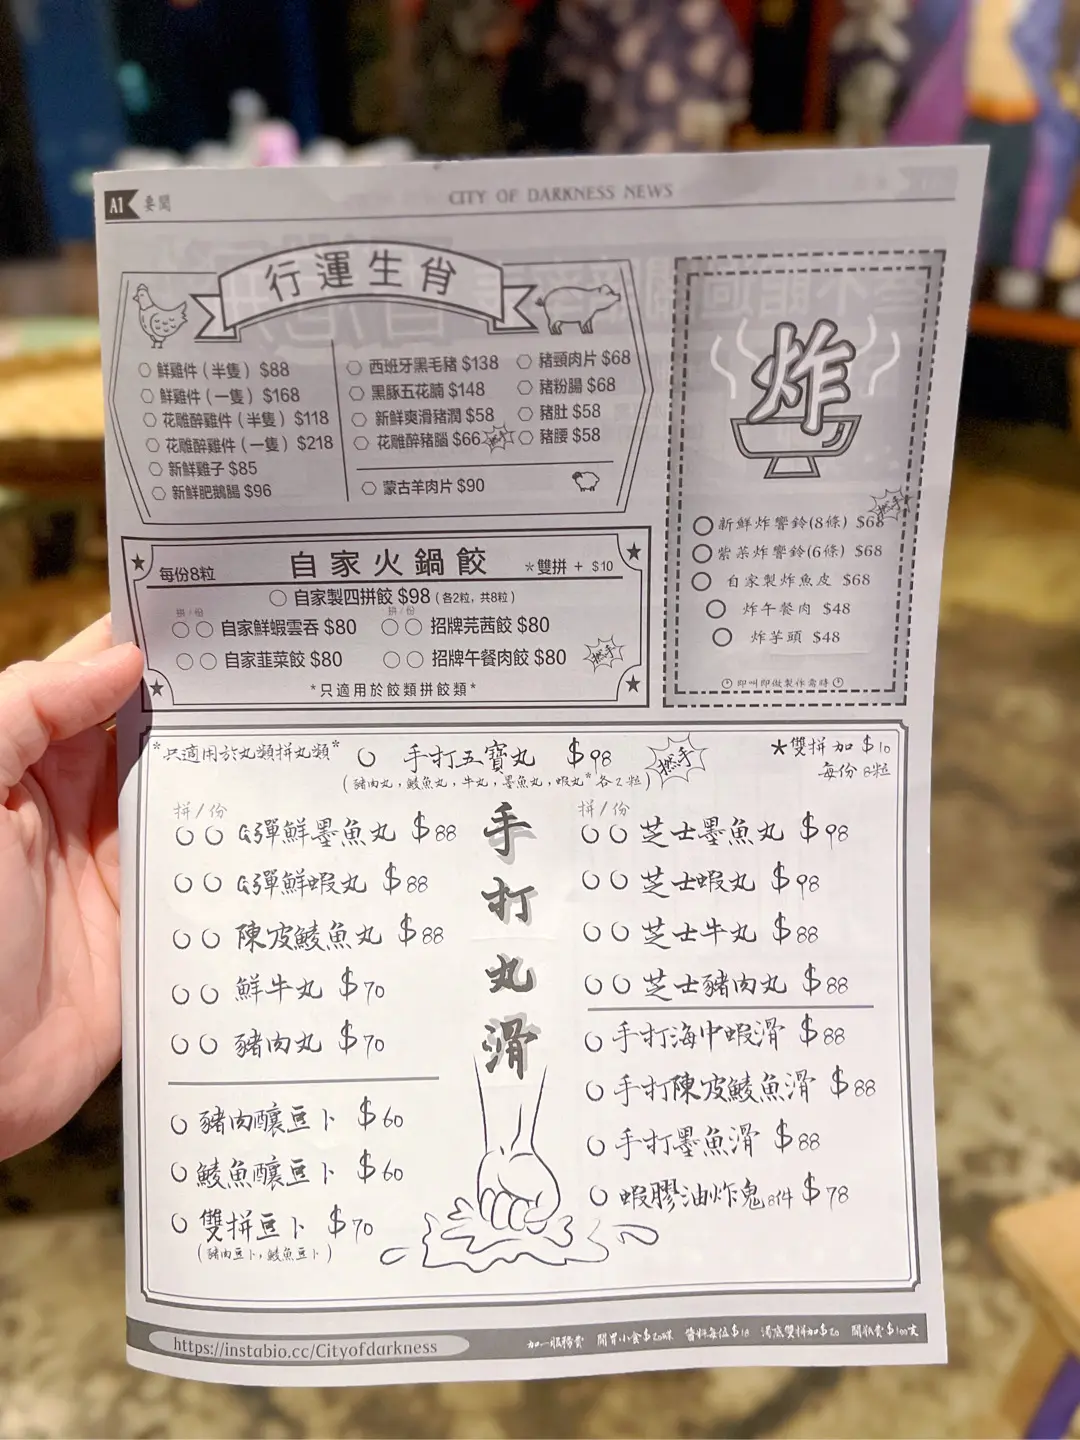 A1 要聞
CITY OF DARKNESS NEWS
行運生肖
鮮雞件（半隻）$88
鮮雞件（一隻）$168
花雕醉雞件（半隻）$118
花雕醉雞件（一隻）$218
新鮮雞子 $85
新鮮肥鵝腸 $96
西班牙黑毛豬 $138
黑豚五花腩 $148
新鮮爽滑豬潤 $58
花雕醉豬腦 $66
豬頸肉片 $68
豬粉腸 $68
豬肚 $58
豬腰 $58
蒙古羊肉片 $90
炸
新鮮炸響鈴(8條) $68
紫菜炸響鈴(6條) $68
自家製炸魚皮 $68
炸午餐肉 $48
炸芋頭 $48
即叫即做製作需時
每份8粒
自家火鍋餃
*雙拼 + $10
自家製四拼餃 $98 (各2粒，共8粒)
拼/份
拼/份
自家鮮蝦雲吞 $80
招牌芫茜餃 $80
自家韮菜餃 $80
招牌午餐肉餃 $80
惹手
*只適用於餃類拼餃類*
*只適用於丸類拼丸類*
手打五寶丸 $98
(豬肉丸，鯪魚丸，牛丸，墨魚丸，蝦丸*各2粒)
★雙拼加 $10
每份 8粒
手打丸滑
拼/份
彈鮮墨魚丸 $88
彈鮮蝦丸 $88
陳皮鯪魚丸 $88
鮮牛丸 $70
豬肉丸 $70
豬肉釀豆卜 $60
鯪魚釀豆卜 $60
雙拼豆卜 $70
(豬肉豆卜，鯪魚豆卜)
拼/份
芝士墨魚丸 $98
芝士蝦丸 $98
芝士牛丸 $88
芝士豬肉丸 $88
手打海中蝦滑 $88
手打陳皮鯪魚滑 $88
手打墨魚滑 $88
蝦膠油炸鬼 8件 $78
https://instabio.cc/Cityofdarkness
加一服務費 開胃小食$20/碟 醬料每位$18 湯底雙拼加$20 開瓶費$100/支